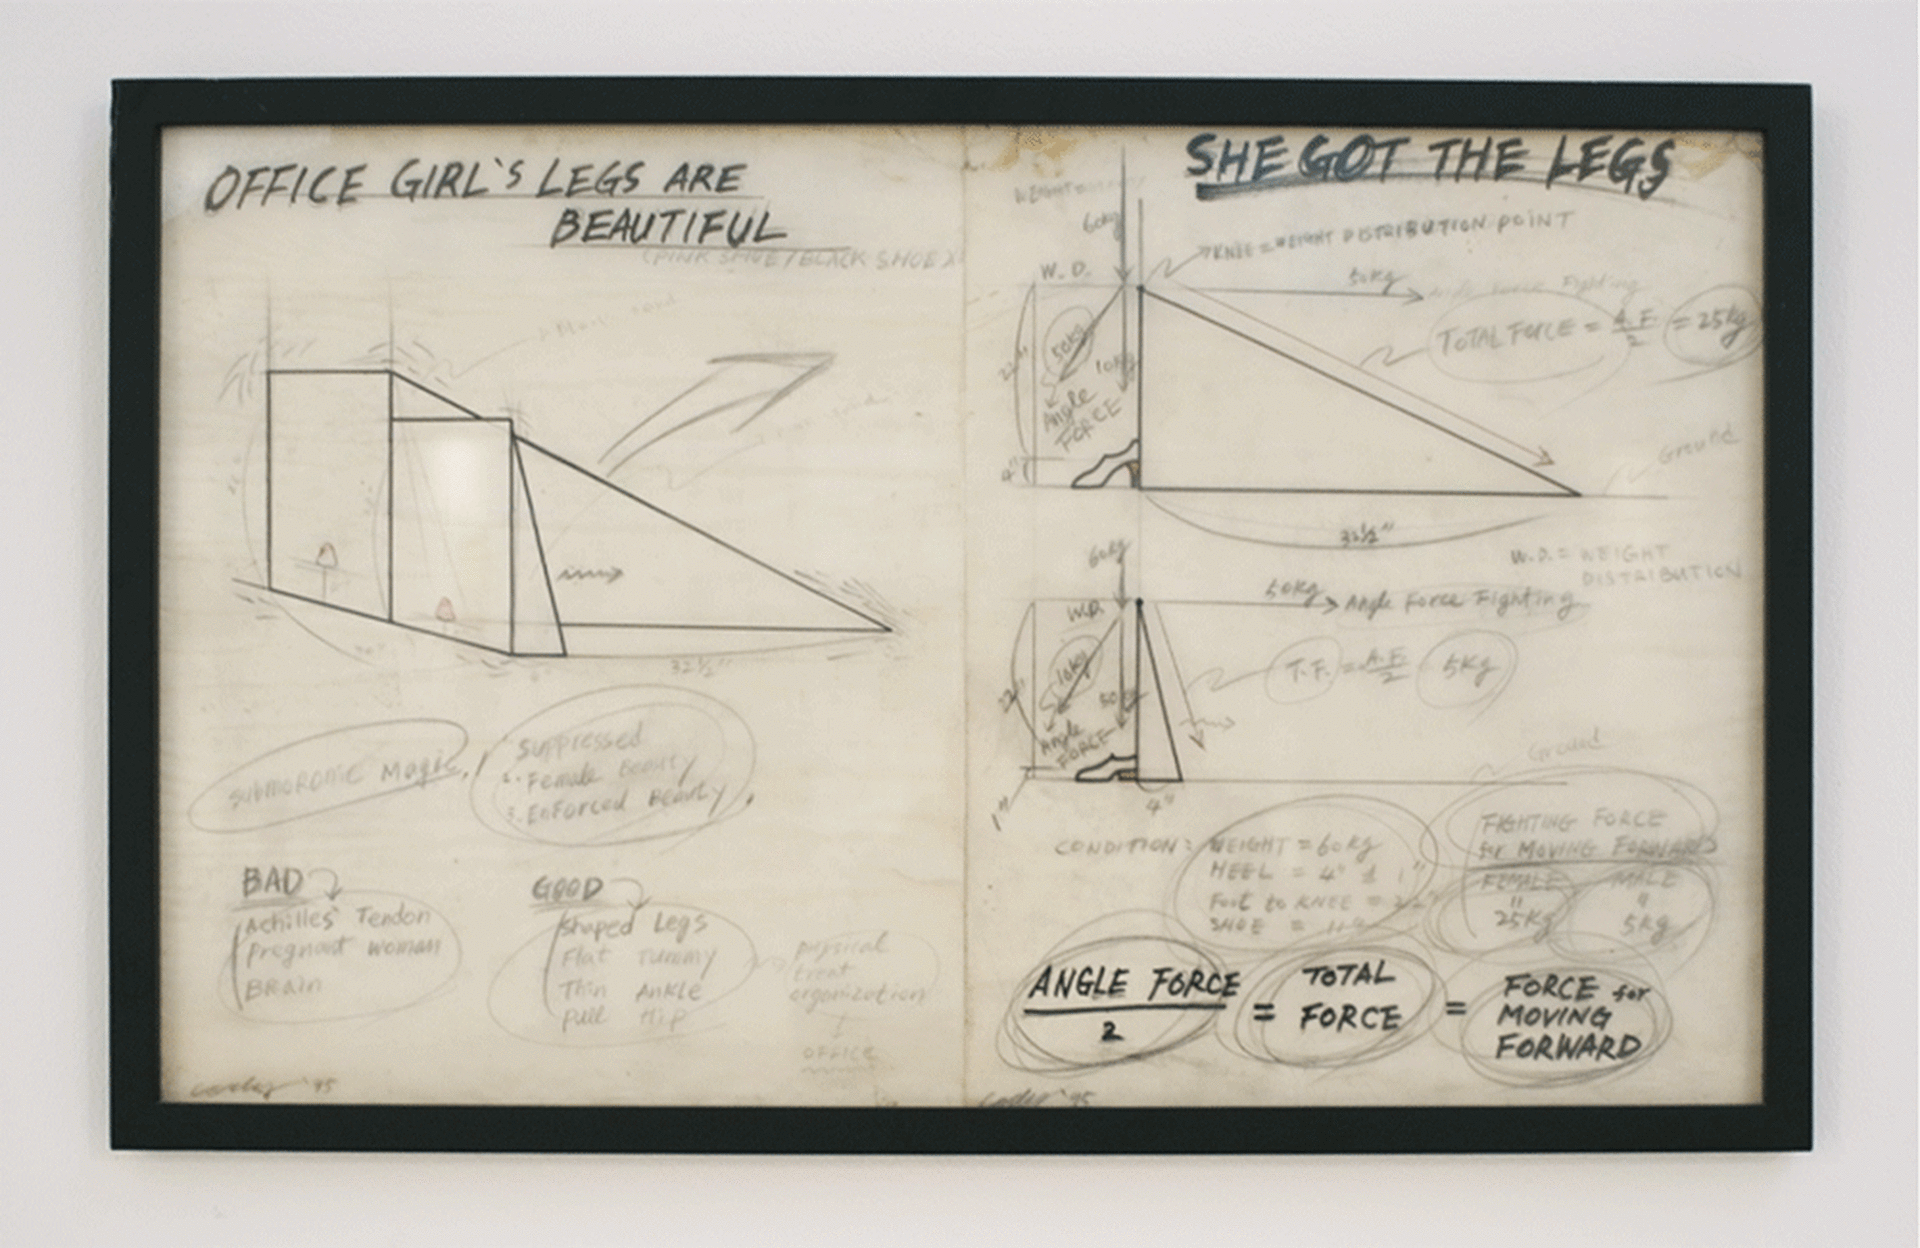 OFFICE GIRL'S LEGS ARE
BEAUTIFUL
(PINK SHOE / BLACK SHOE X)
32½"
submoronic Magic,
Suppressed
2. Female Beauty
3. Enforced Beauty,
BAD
Achilles' Tendon
Pregnant woman
Brain
GOOD
shaped Legs
Flat Tummy
Thin Ankle
pull Hip
physical
treat
organization
OFFICE
'95
SHE GOT THE LEGS
WEIGHT =
60kg
KNEE = WEIGHT DISTRIBUTION POINT
W.D.
50kg
Force Fighting
TOTAL FORCE = A.F./2 = 25kg
50kg
10kg
22"
Angle
FORCE
4"
Ground
32½"
W.D. = WEIGHT
DISTRIBUTION
60kg
50kg
Angle Force Fighting
W.D.
T.F. = A.F./2 5kg
10kg
50
22"
Angle
FORCE
1"
4"
Ground
CONDITION: WEIGHT = 60kg
HEEL = 4" & 1"
Foot to KNEE = 22"
SHOE =
FIGHTING FORCE
for MOVING FORWARDS
FEMALE MALE
" "
25kg 5kg
ANGLE FORCE
2
=
TOTAL
FORCE
=
FORCE for
MOVING
FORWARD
'95